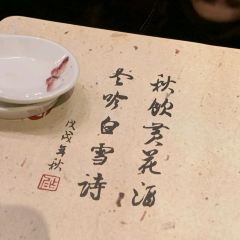 秋飲黃花酒
冬吟白雪詩
戊戌年秋